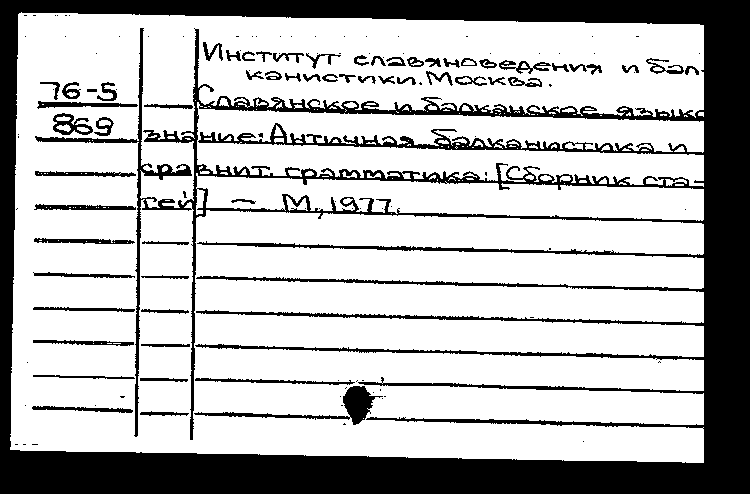 Институт славяноведения и бал-
канистики. Москва.
76-5
Славянское и балканское языко
869
знание: Античная балканистика и
сравнит. грамматика: [Сборник ста-
тей] — М., 1977.